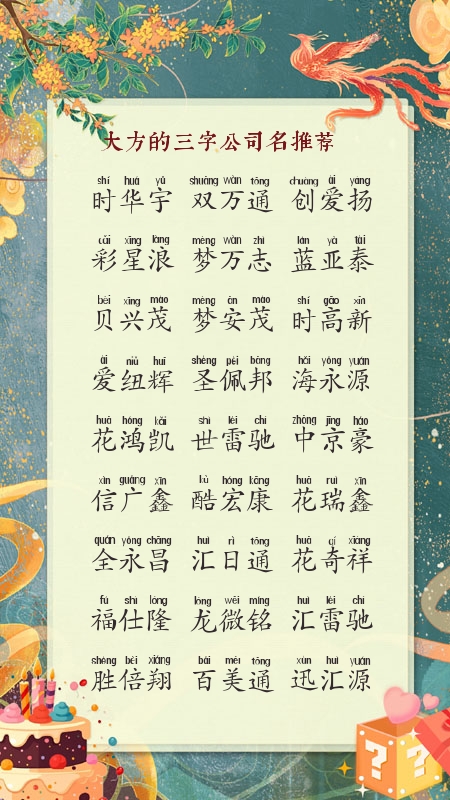 大方的三字公司名推荐
shí huá yǔ shuāng wàn tōng chuàng ài yáng
时华宇 双万通 创爱扬
cǎi xīng làng mèng wàn zhì lán yà tài
彩星浪 梦万志 蓝亚泰
bèi xīng mào mèng ān mào shí gāo xīn
贝兴茂 梦安茂 时高新
ài niǔ huī shèng pèi bāng hǎi yǒng yuán
爱纽辉 圣佩邦 海永源
huā hóng kǎi shì léi chí zhōng jīng háo
花鸿凯 世雷驰 中京豪
xìn guǎng xīn kù hóng kāng huā ruì xīn
信广鑫 酷宏康 花瑞鑫
quán yǒng chāng huì rì tōng huā qí xiáng
全永昌 汇日通 花奇祥
fú shì lóng lóng wēi míng huì léi chí
福仕隆 龙微铭 汇雷驰
shèng bèi xiáng bǎi měi tōng xùn huì yuán
胜倍翔 百美通 迅汇源
? ?